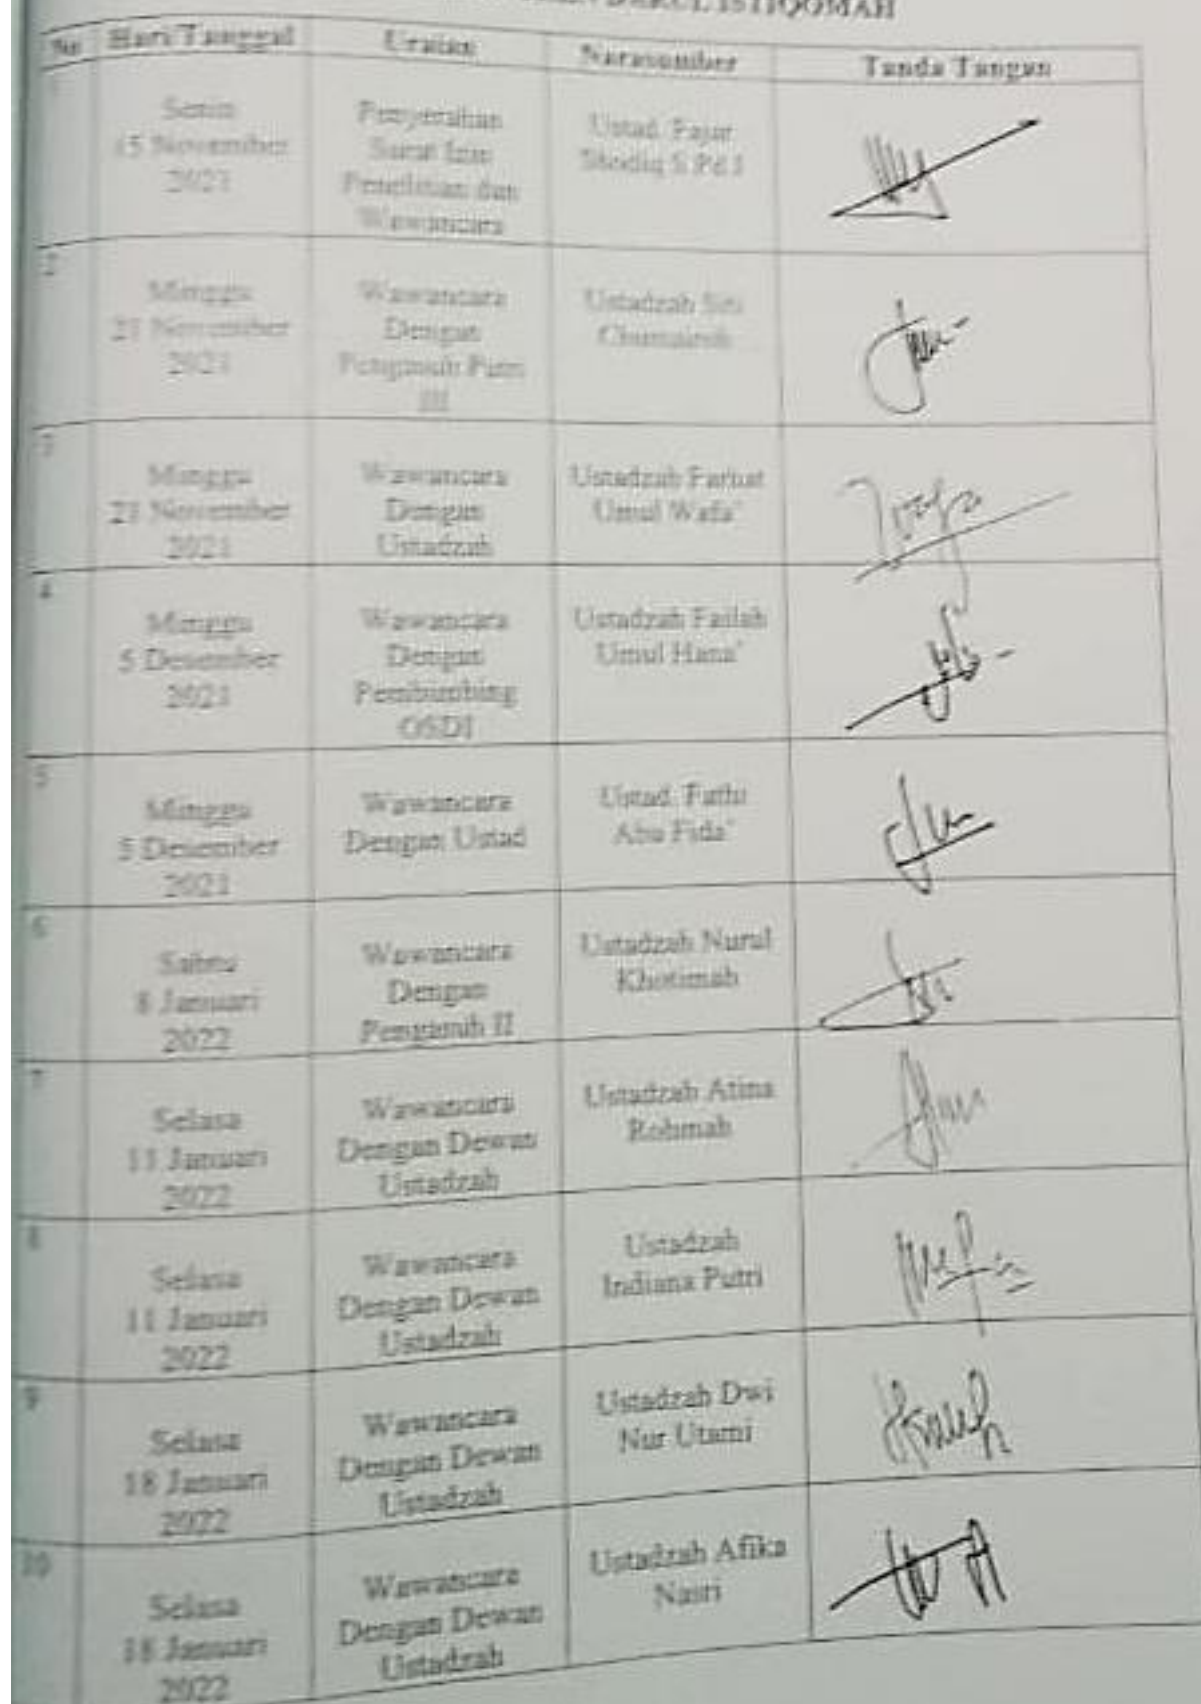 DARUL ISTIQOMAH
No Hari/Tanggal Uraian Narasumber Tanda Tangan
1
Senin
15 November
2021
Penyerahan
Surat Izin
Penelitian dan
Wawancara
Ustad. Fajar
Shodiq S.Pd.I
2
Minggu
21 November
2021
Wawancara
Dengan
Pengasuh Putri
III
Ustadzah Siti
Chumairoh
3
Minggu
21 November
2021
Wawancara
Dengan
Ustadzah
Ustadzah Farhat
Umul Wafa'
4
Minggu
5 Desember
2021
Wawancara
Dengan
Pembimbing
OSDI
Ustadzah Failah
Umul Hana'
5
Minggu
5 Desember
2021
Wawancara
Dengan Ustad
Ustad. Fathi
Abu Fida'
6
Sabtu
8 Januari
2022
Wawancara
Dengan
Pengasuh II
Ustadzah Nurul
Khotimah
7
Selasa
11 Januari
2022
Wawancara
Dengan Dewan
Ustadzah
Ustadzah Atina
Rohmah
8
Selasa
11 Januari
2022
Wawancara
Dengan Dewan
Ustadzah
Ustadzah
Indiana Putri
9
Selasa
18 Januari
2022
Wawancara
Dengan Dewan
Ustadzah
Ustadzah Dwi
Nur Utami
10
Selasa
18 Januari
2022
Wawancara
Dengan Dewan
Ustadzah
Ustadzah Afika
Nasri